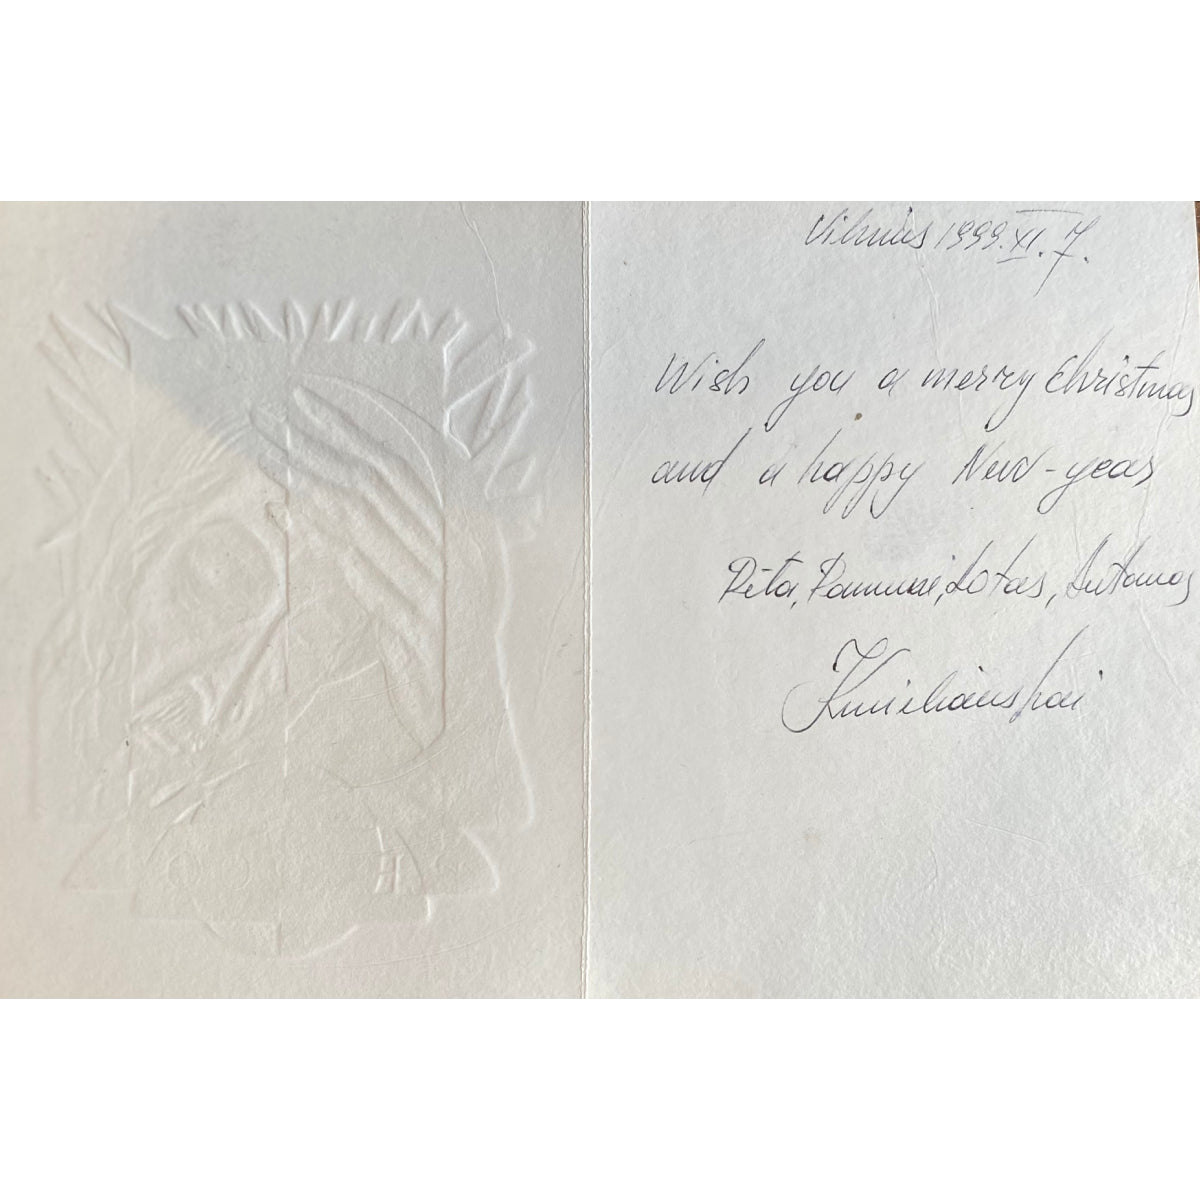 Vilnius 1999.XI.7.
Wish you a merry Christmas
and a happy New-year
Rita, Antanas